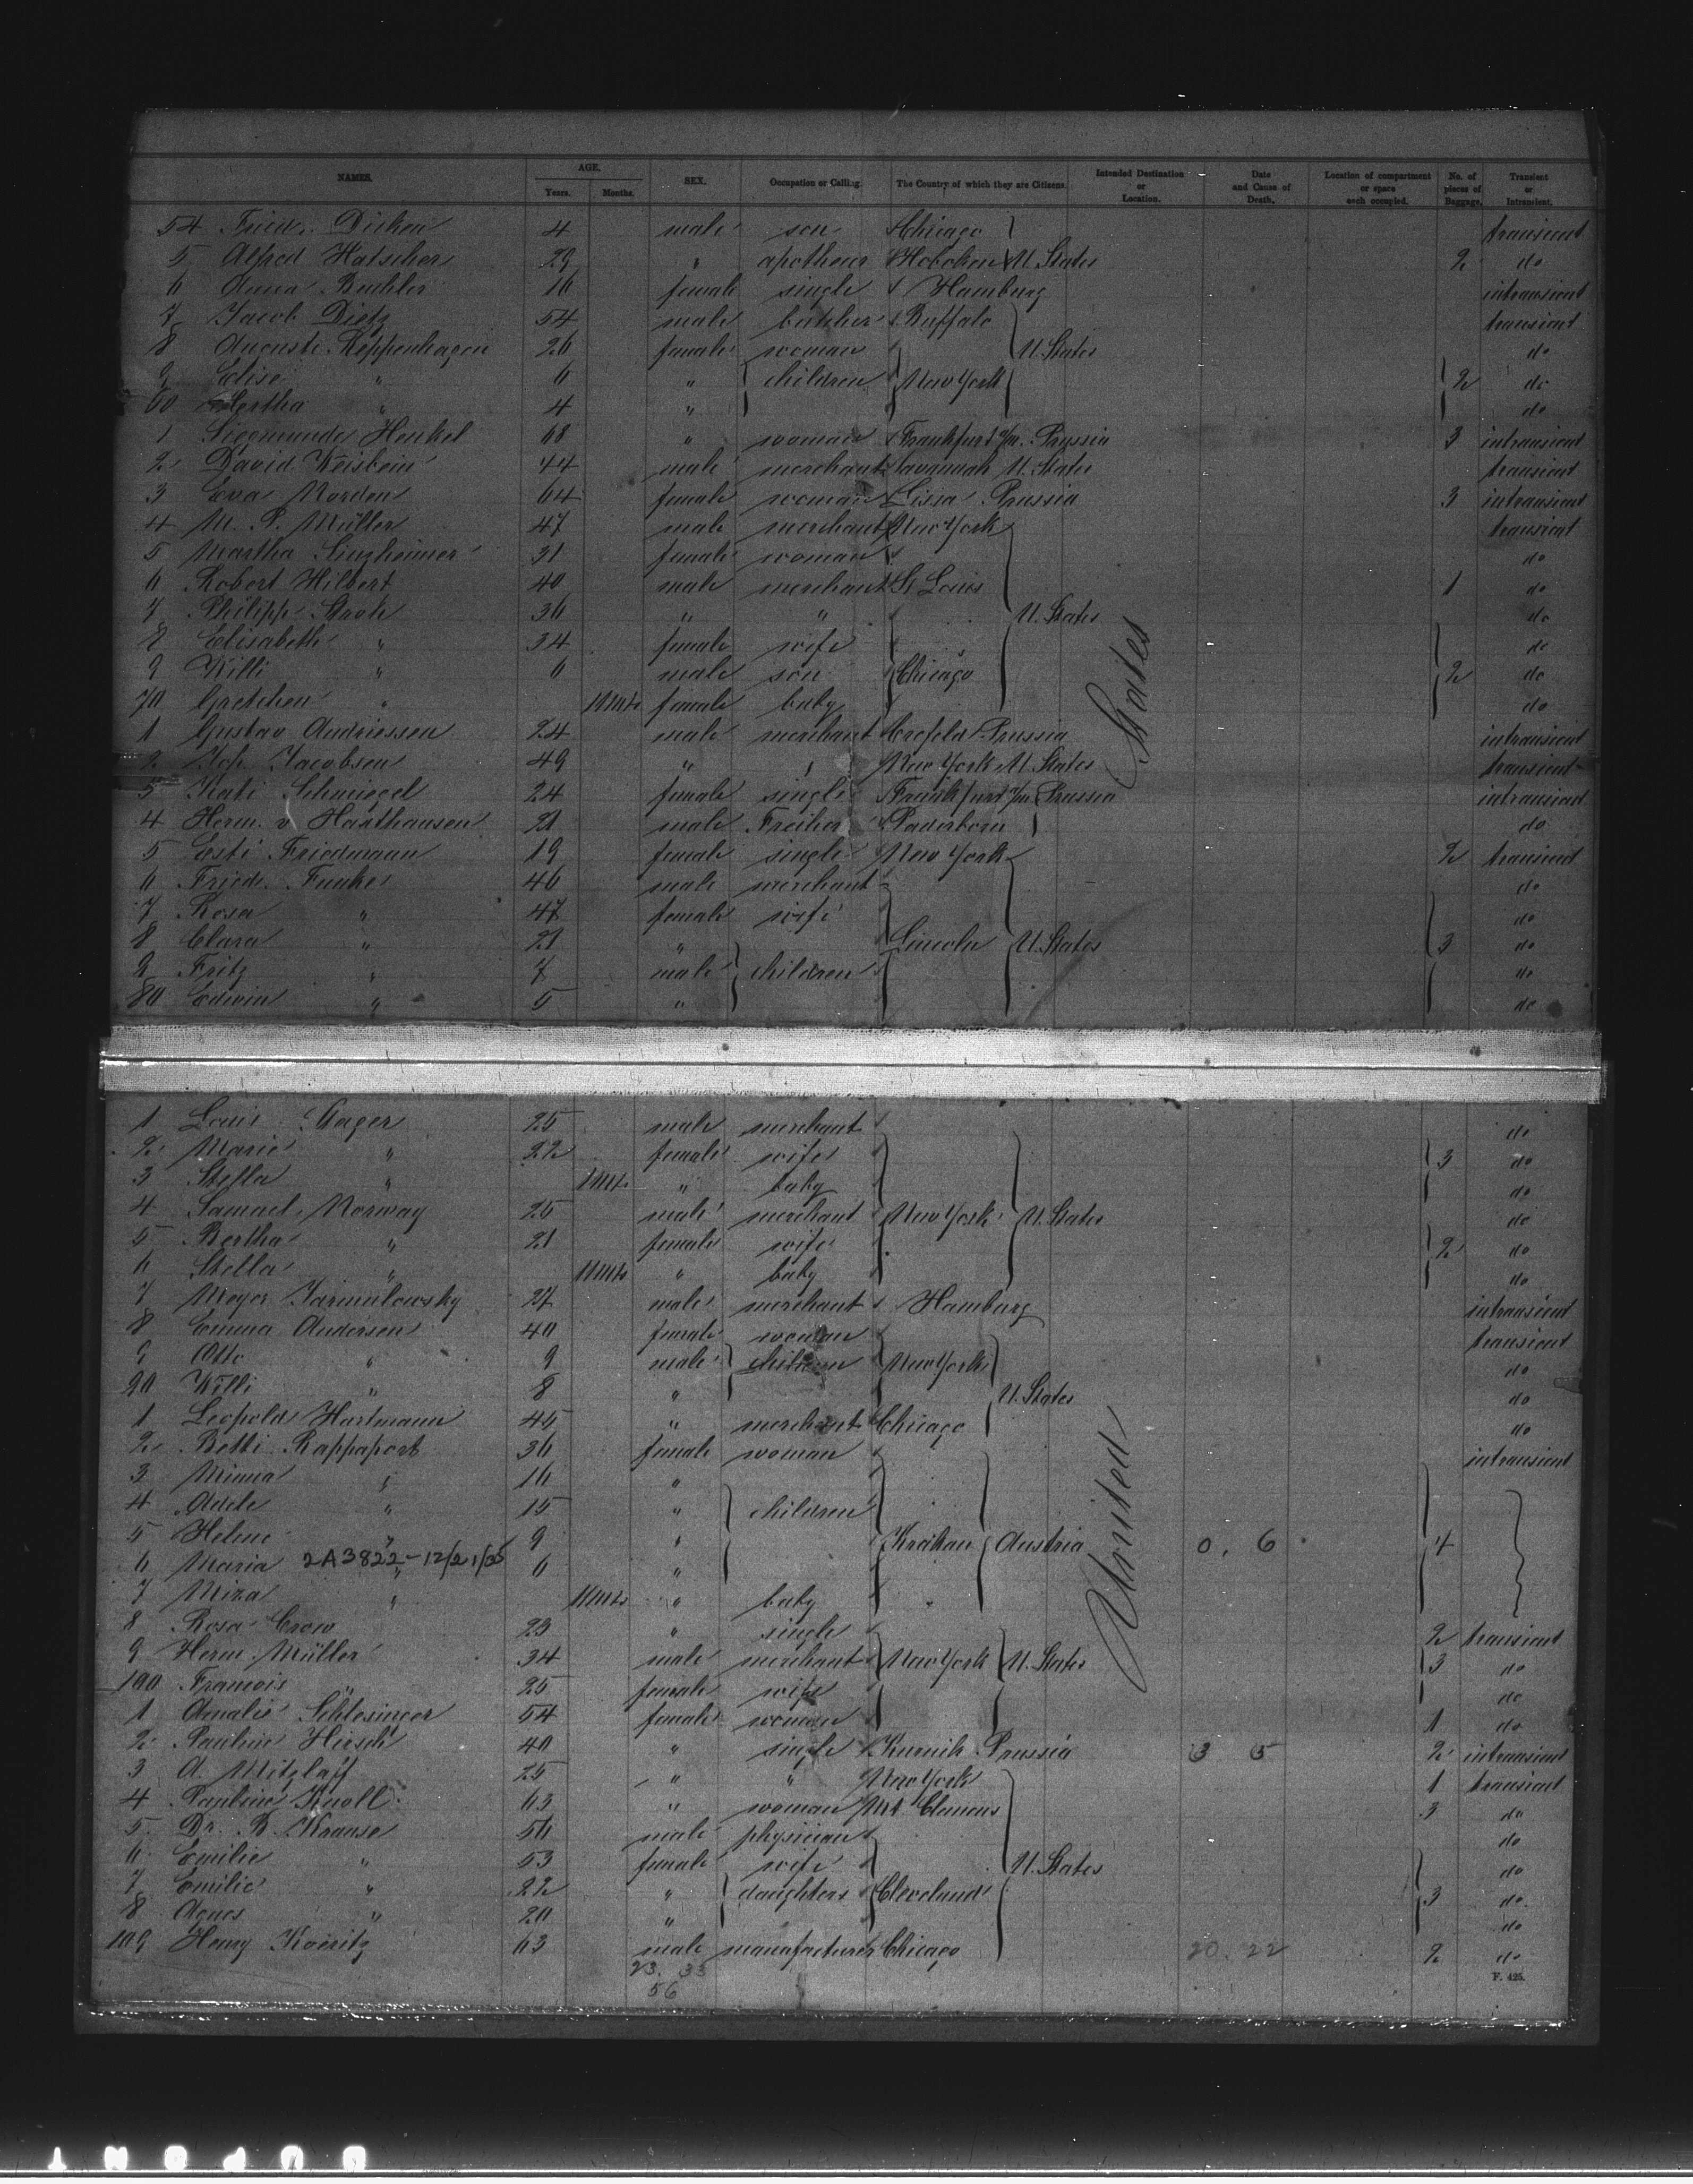 NAMES. AGE. SEX. Occupation or Calling. The Country of which they are Citizens. Intended Destination or Location. Date and Cause of Death. Location of compartment or space each occupied. No. of pieces of Baggage. Transient or Intransient.
Years. Months.
54 Fried. Dicken 4 male son Chicago transient
5 Alfred Hatscher 29 " Hoboken U. States 2 do
6 Anna Buhler 16 female single Hamburg intransient
7 Jacob Dietz 54 male butcher Buffalo transient
8 Auguste Koppenhagen 26 female woman U. States do
9 Elise " 6 " children New York 2 do
60 Hertha " 4 " do
1 Siegmunde Henkel 68 " woman Frankfurt a/m. Prussia 3 intransient
2 David Weisbein 44 male merchant Savannah U. States transient
3 Eva Norden 64 female woman Lissa Prussia 3 intransient
4 M. P. Müller 47 male merchant New York transient
5 Martha Sinzheimer 31 female woman do
6 Robert Hilbert 40 male merchant St Louis 1 do
7 Philipp Stroh 36 " " U. States do
8 Elisabeth " 34 female wife do
9 Willi " 6 male son Chicago 2 do
70 Gretchen " 11 mts female baby do
1 Gustav Andriessen 24 male merchant Crefeld Prussia intransient
2 Joh. Jacobsen 49 " " New York U. States transient
3 Kati Schmiegel 24 female single Frankfurt a/m Prussia intransient
4 Herm. v Haxthausen 21 male Freiherr Paderborn do
5 Esti Friedmann 19 female single New York 2 transient
6 Fried. Funke 46 male merchant do
7 Rosa " 47 female wife do
8 Clara " 21 " Lincoln U. States 3 do
9 Fritz " 7 male children do
80 Edwin " 5 " do
1 Louis Stager 25 male merchant do
2 Marie " 22 female wife 3 do
3 Stella " 11 mts " baby do
4 Samuel Norway 25 male merchant New York U. States do
5 Bertha " 21 female wife 2 do
6 Stella " 11 mts " baby do
7 Meyer Jarmulowsky 27 male merchant Hamburg intransient
8 Emma Andersen 40 female woman transient
9 Otto " 9 male children New York do
90 Willi " 8 " U. States do
1 Leopold Hartmann 45 " merchant Chicago do
2 Betti Rappaport 36 female woman intransient
3 Minna " 16 "
4 Adele " 15 " children
5 Helene " 9 " Krakau Austria 0. 6 4
6 Maria 2A3822-12/21/35 " 6 "
7 Miza " 11 mts " baby
8 Rosa Crow 23 " single 2 transient
9 Herm. Müller 34 male merchant New York U. States 3 do
100 Francois " 25 female wife do
1 Amalie Schlesinger 54 female woman 1 do
2 Pauline Hirsch 40 " single Kurnik Prussia 3 5 2 intransient
3 A. Mitzlaff 25 " " New York 1 transient
4 Pauline Knoll 63 " woman Mt Clemens 3 do
5 Dr. B. Krause 56 male physician do
6 Emilie " 53 female wife U. States do
7 Emilie " 22 " daughters Cleveland 3 do
8 Agnes " 20 " do
109 Henry Koeritz 63 male manufacturer Chicago 20. 22 2 do
23. 33
56
F. 425.
United States